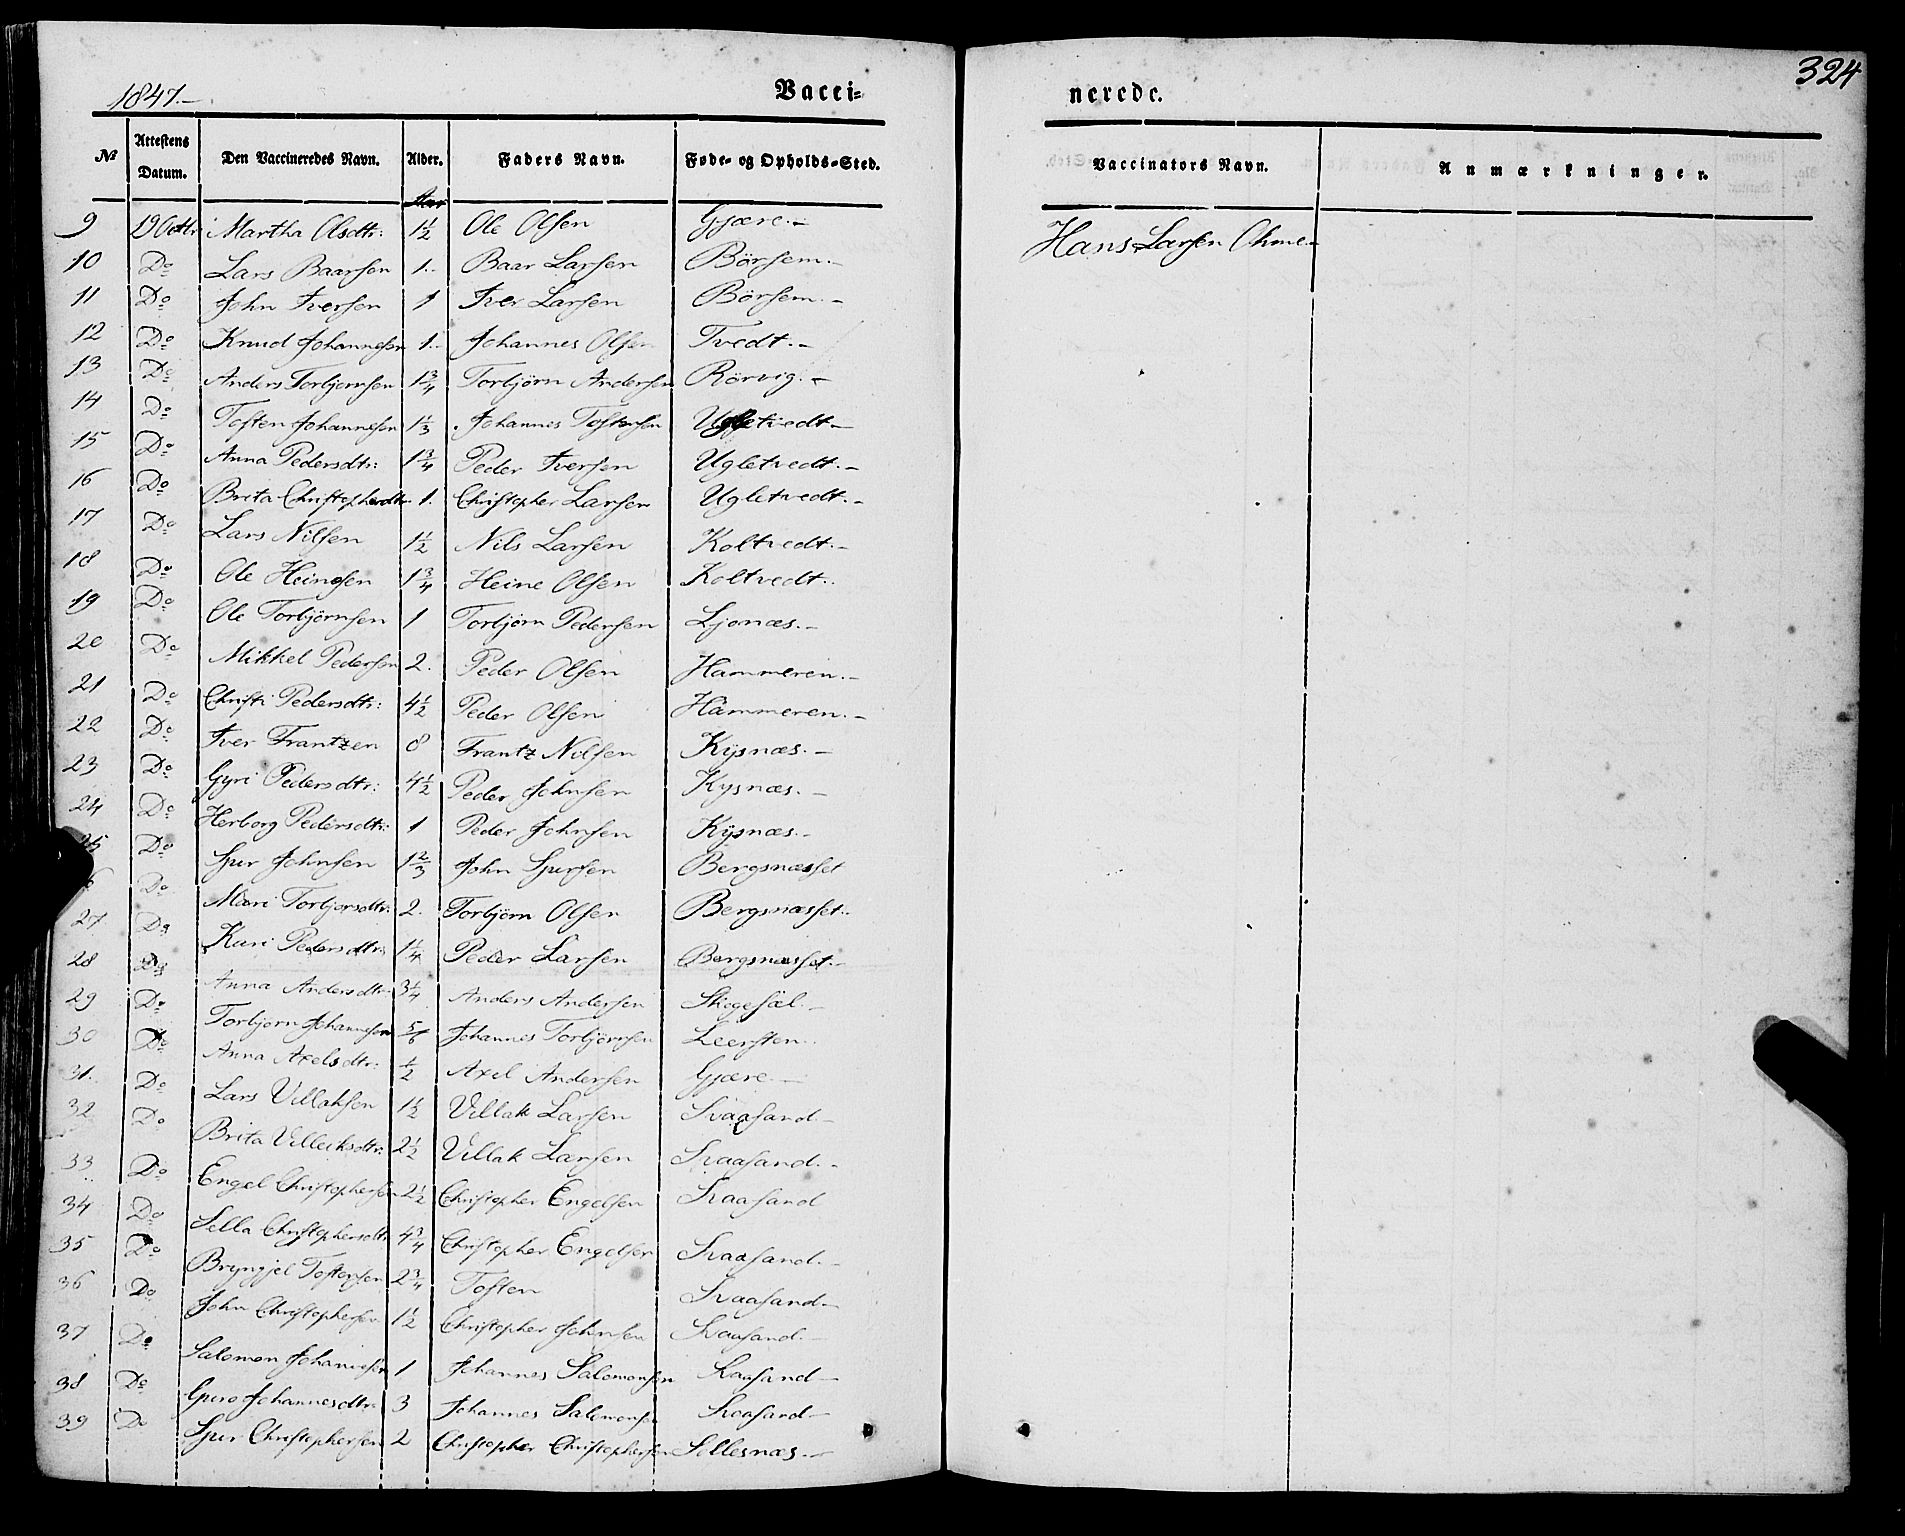 1847.-
Vacci-
nerede.
324
No
Attestens Datum.
Den Vaccineredes Navn.
Alder.
Faders Navn.
Føde- og Opholds-Sted.
Vaccinators Navn.
Anmærkninger.
Aar
9 19 Octbr: Martha Olsdtr: 1½ Ole Olsen Gjære.- Hans Larsen Ohme.-
10 Do Lars Baarsen 1.- Baar Larsen Börsem.-
11 Do John Iversen 1 Iver Larsen Börsem.-
12 Do Knud Johannesen 1.- Johannes Olsen Tvedt.-
13 Do Anders Torbjornsen 1¾ Torbjörn Andersen Rörvig.-
14 Do Tosten Johannesen 1⅓ Johannes Tostensen Ugletvedt-
15 Do Anna Pedersdtr: 1¾ Peder Iversen Ugletvedt.-
16 Do Brita Christophersdtr 1. Christopher Larsen Ugletvedt.-
17 Do Lars Nilsen 1½ Nils Larsen Koltvedt.-
18 Do Ole Heinesen 1¾ Heine Olsen Koltvedt..
19 Do Ole Torbjörnsen 1 Torbjörn Pedersen Ljonæs.-
20 Do Mikkel Pedersen 2. Peder Olsen Hammeren.-
21 Do Christi Pedersdtr: 4½ Peder Olsen Hammeren.-
22 Do Iver Frantzen 8 Frantz Nilsen Kysnæs.-
23 Do Gyri Pedersdtr: 4½ Peder Johnsen Kysnæs.-
24 Do Herborg Pedersdtr: 1 Peder Johnsen Kysnæs.-
25 Do Sjur Johnsen 1⅔ John Sjursen Bergsnæsset
6 Do Mari Torbjørsdtr: 2. Torbjörn Olsen Bergsnæsset..
27 Do Kari Pedersdtr: 1¼ Peder Larsen Bergsnæsset.-
28 Do Anna Andersdtr: 3¼ Anders Andersen
29 Do Torbjorn Johannesen 5/6 Johannes Torbjörnsen Leersten..
30 Do Anna Axelsdtr: ½ Axel Andersen Gjære.-
31. Do Lars Villaksen 1½ Villak Larsen Svaasand.-
32 Do Brita Villaksdtr: 2½ Villak Larsen Svaasand.-
33 Do Engel Christophersen 2½ Christopher Engelsen Svaasand
34 Do Sella Christophersdtr 4¾ Christopher Engelsen Svaasand.-
35 Do Bryngjel Tostensen 2¾ Tosten Svaasand-
36 Do John Christophersen 1½ Christopher Johnsen Svaasand.-
37 Do Salomon Johannesen 1 Johannes Salomonsen Svaasand-
38 Do Guro Johannesdtr: 3 Johannes Salomonsen Svaasand-
39 Do Sjur Christophersen 2 Christopher Christophersen Sellesnæs.-